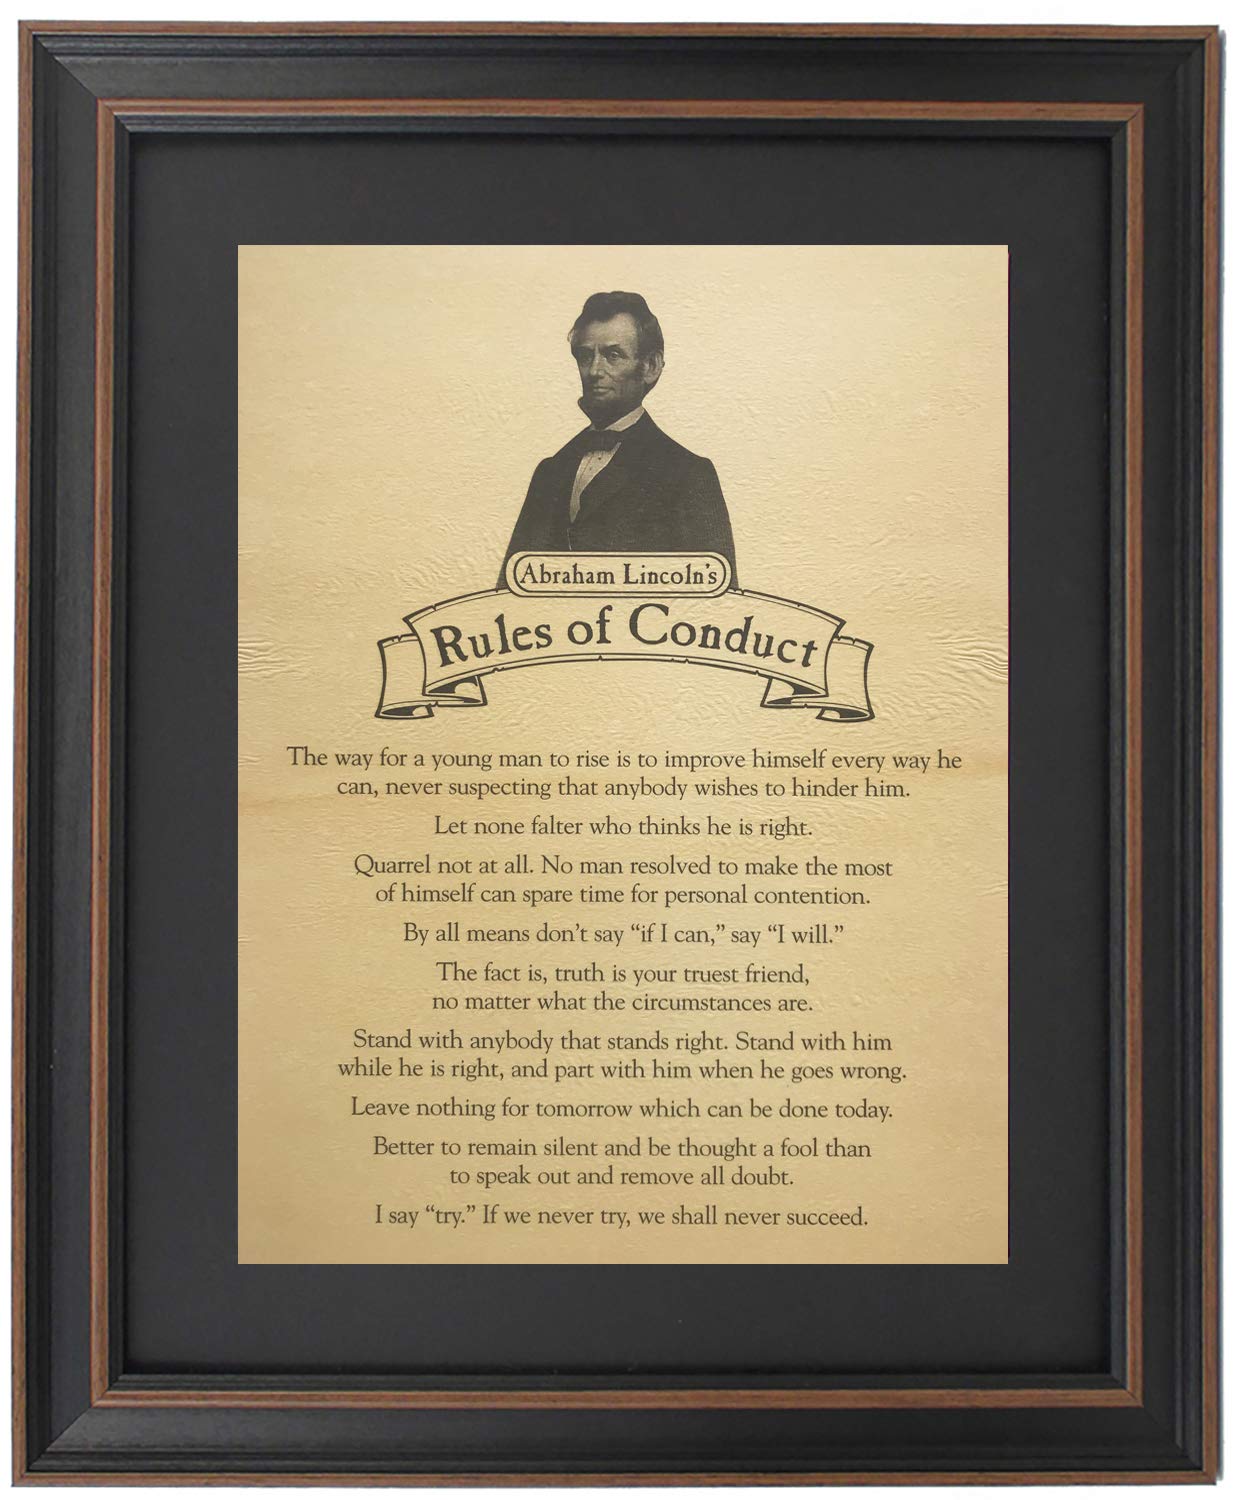 Abraham Lincoln's
Rules of Conduct
The way for a young man to rise is to improve himself every way he
can, never suspecting that anybody wishes to hinder him.
Let none falter who thinks he is right.
Quarrel not at all. No man resolved to make the most
of himself can spare time for personal contention.
By all means don't say “if I can,” say “I will.”
The fact is, truth is your truest friend,
no matter what the circumstances are.
Stand with anybody that stands right. Stand with him
while he is right, and part with him when he goes wrong.
Leave nothing for tomorrow which can be done today.
Better to remain silent and be thought a fool than
to speak out and remove all doubt.
I say “try.” If we never try, we shall never succeed.